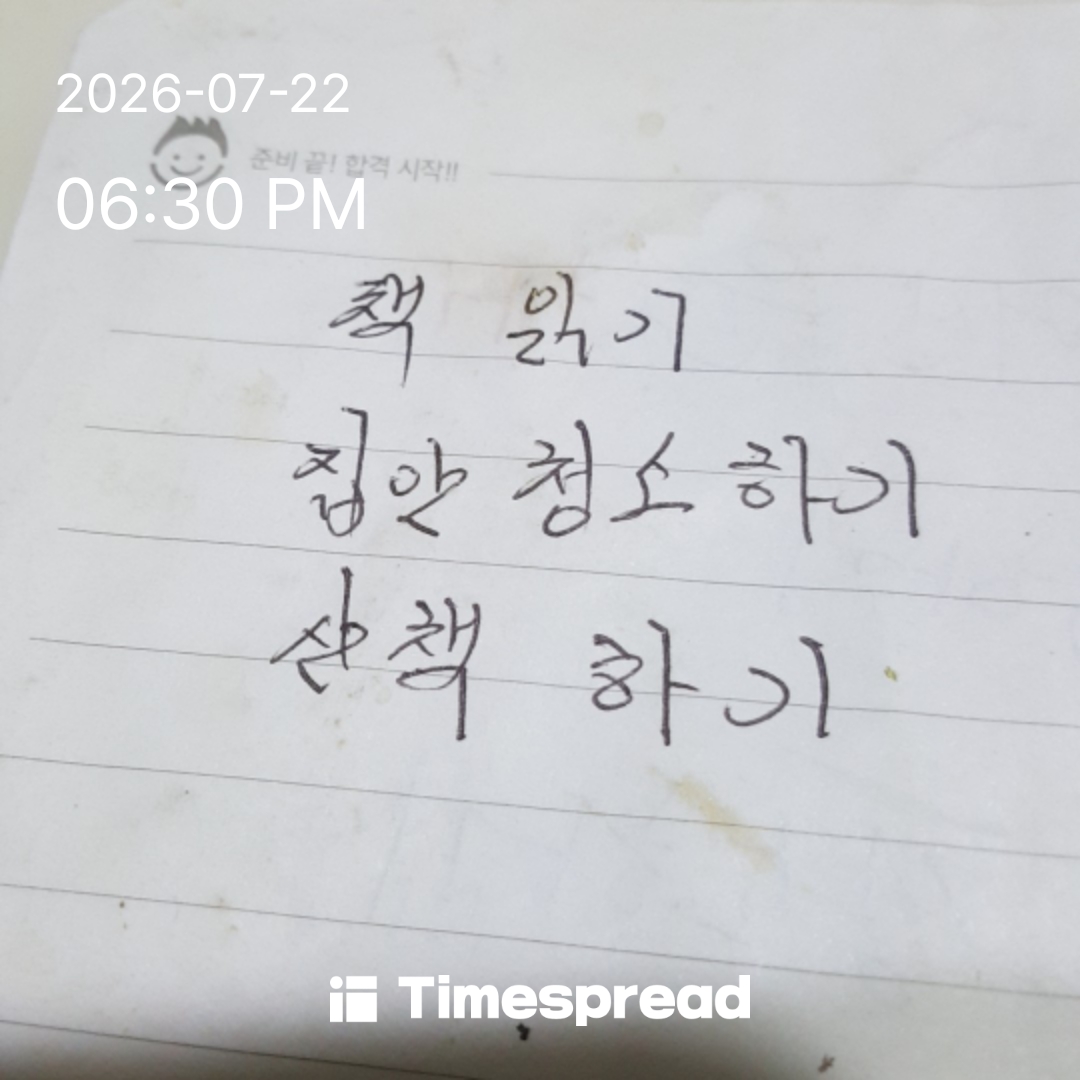 2026-07-22
준비 끝! 합격 시작!!
06:30 PM
책 읽기
집안 청소하기
산책 하기
Timespread